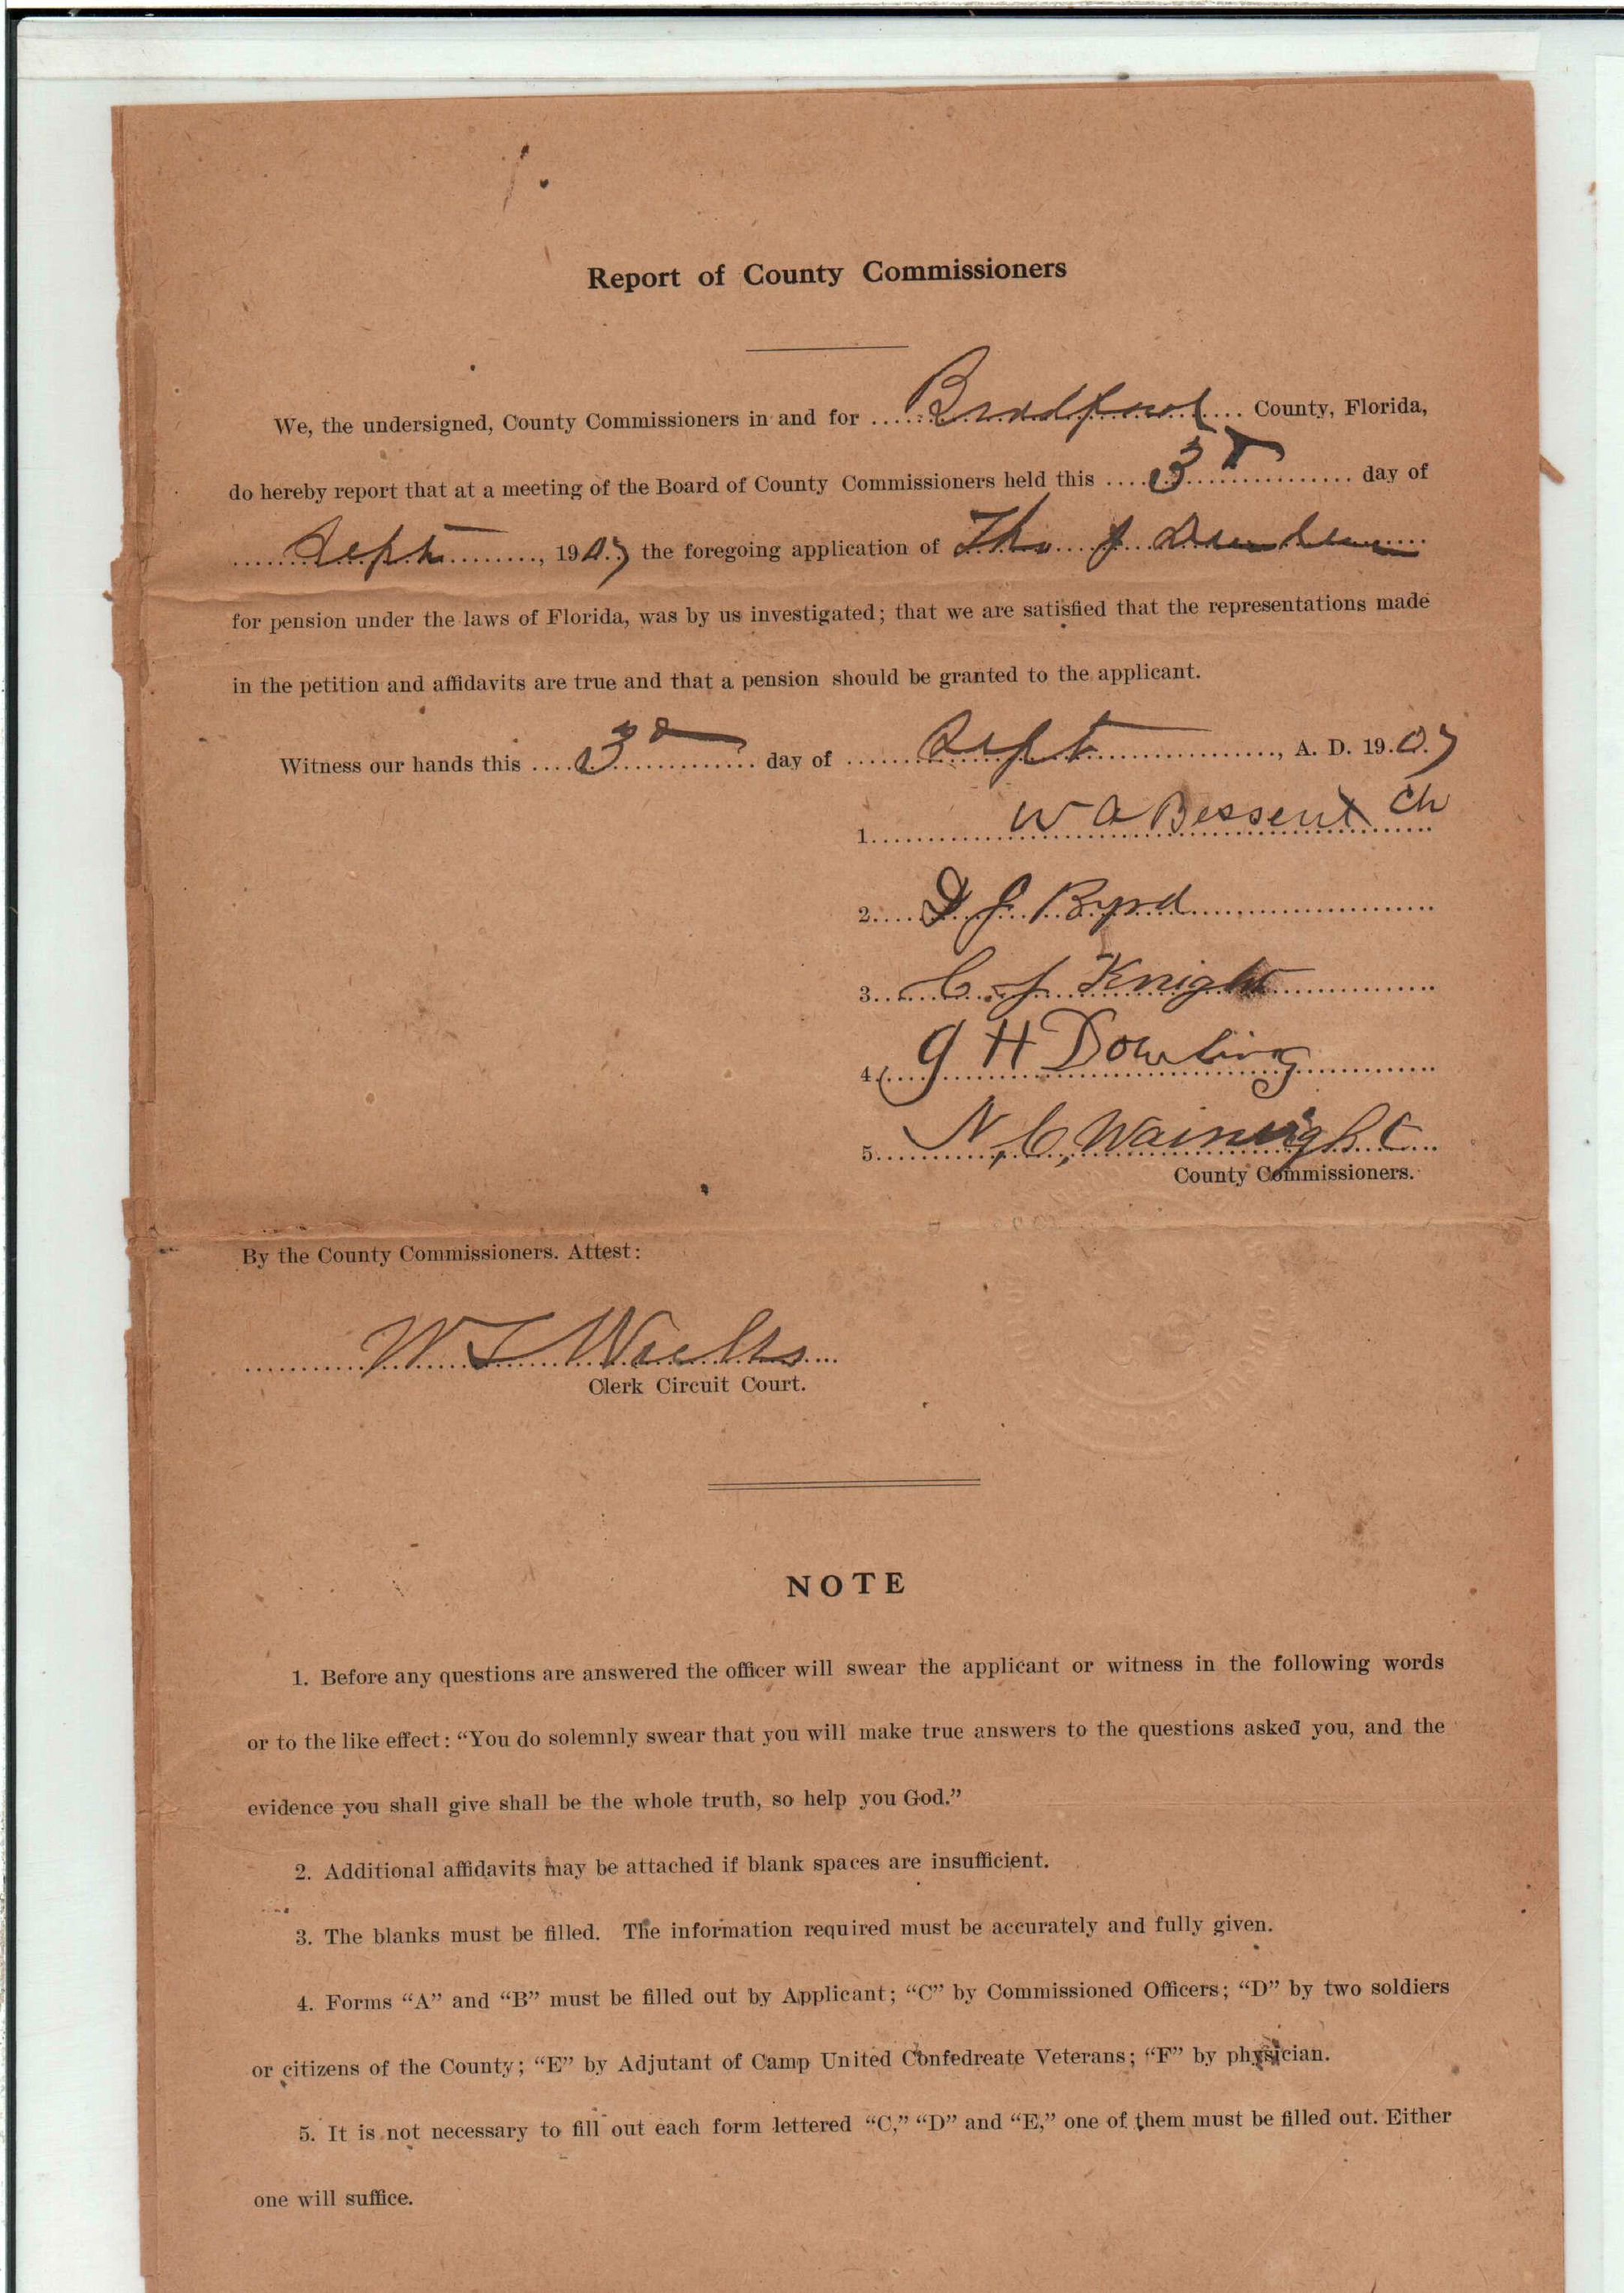 Report of County Commissioners
We, the undersigned, County Commissioners in and for Bradford County, Florida,
do hereby report that at a meeting of the Board of County Commissioners held this 3d day of
Sept, 1907 the foregoing application of Tho J
for pension under the laws of Florida, was by us investigated; that we are satisfied that the representations made
in the petition and affidavits are true and that a pension should be granted to the applicant.
Witness our hands this 3d day of Sept, A. D. 1907
1. W A Bessent Ch
2. D J Byrd
3. C J Knight
4. G H Dowling
5. N. C. Wainright
County Commissioners.
By the County Commissioners. Attest:
W T Weeks
Clerk Circuit Court.
NOTE
1. Before any questions are answered the officer will swear the applicant or witness in the following words
or to the like effect: “You do solemnly swear that you will make true answers to the questions asked you, and the
evidence you shall give shall be the whole truth, so help you God.”
2. Additional affidavits may be attached if blank spaces are insufficient.
3. The blanks must be filled. The information required must be accurately and fully given.
4. Forms “A” and “B” must be filled out by Applicant; “C” by Commissioned Officers; “D” by two soldiers
or citizens of the County; “E” by Adjutant of Camp United Confedreate Veterans; “F” by physician.
5. It is not necessary to fill out each form lettered “C,” “D” and “E,” one of them must be filled out. Either
one will suffice.